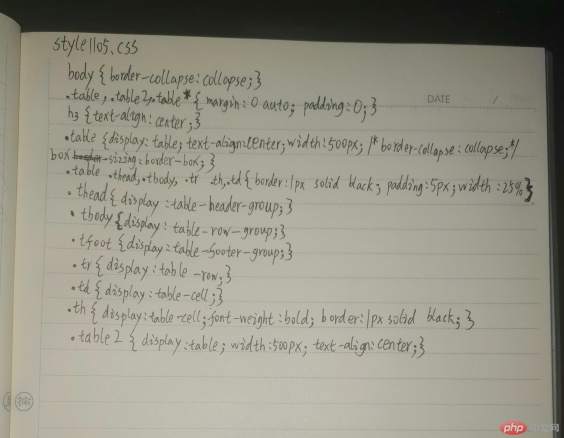 style1105.css
body {border-collapse:collapse;}
.table,.table2,.table * { margin: 0 auto; padding:0;}
DATE / 
h3 {text-align:center;}
.table {display:table; text-align:center; width:500px; /*border-collapse:collapse;*/
box-sizing:border-box;}
.table .thead,.tbody, .tr .th,.td {border:1px solid black; padding:5px; width:25%};
.thead {display: table-header-group;}
.tbody {display: table-row-group;}
.tfoot {display:table-footer-group;}
.tr {display:table-row;}
.td {display:table-cell;}
.th {display:table-cell; font-weight:bold; border:1px solid black;}
.table2 {display:table; width:500px; text-align:center;}
php